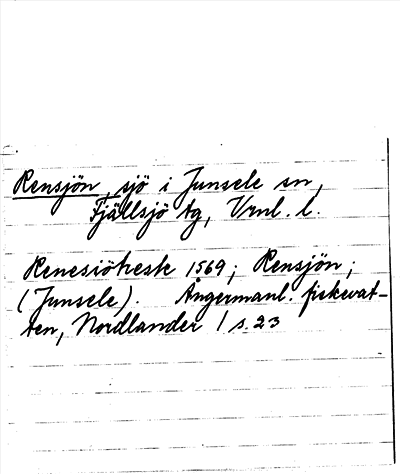 Rensjön, sjö i Junsele sn,
Fjällsjö tg, Vrnl. l.
Renesiötresk 1569; Rensjön;
(Junsele). Ångermanl. fiskevat-
ten, Nordlander 1 s. 23